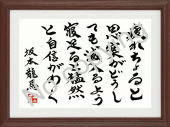 疲れちょると
思案がどうし
ても滅入るよう
寝足ると猛然
と自信がわく
坂本龍馬